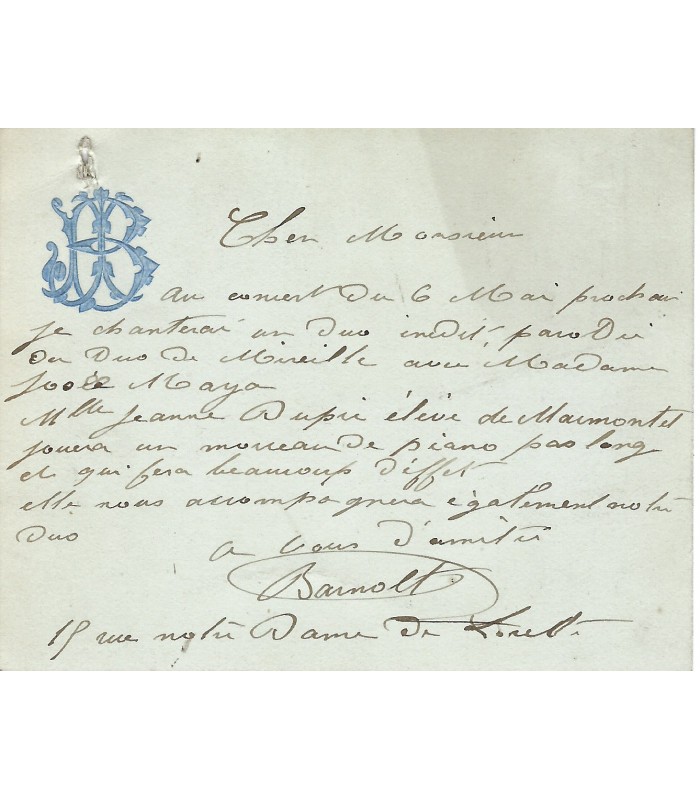 Cher Monsieur
au concert du 6 Mai prochain
je chanterai un duo inedit, parodie
du Duo de Mireille avec Madame
Maya
Mlle Jeanne Dupie élève de Marmontel
jouera un morceau de piano pas long
et qui fera beaucoup d'effet
elle nous accompagnera également notre
Duo
a vous d'amitié
Barnolt
15 rue notre Dame de Lorette